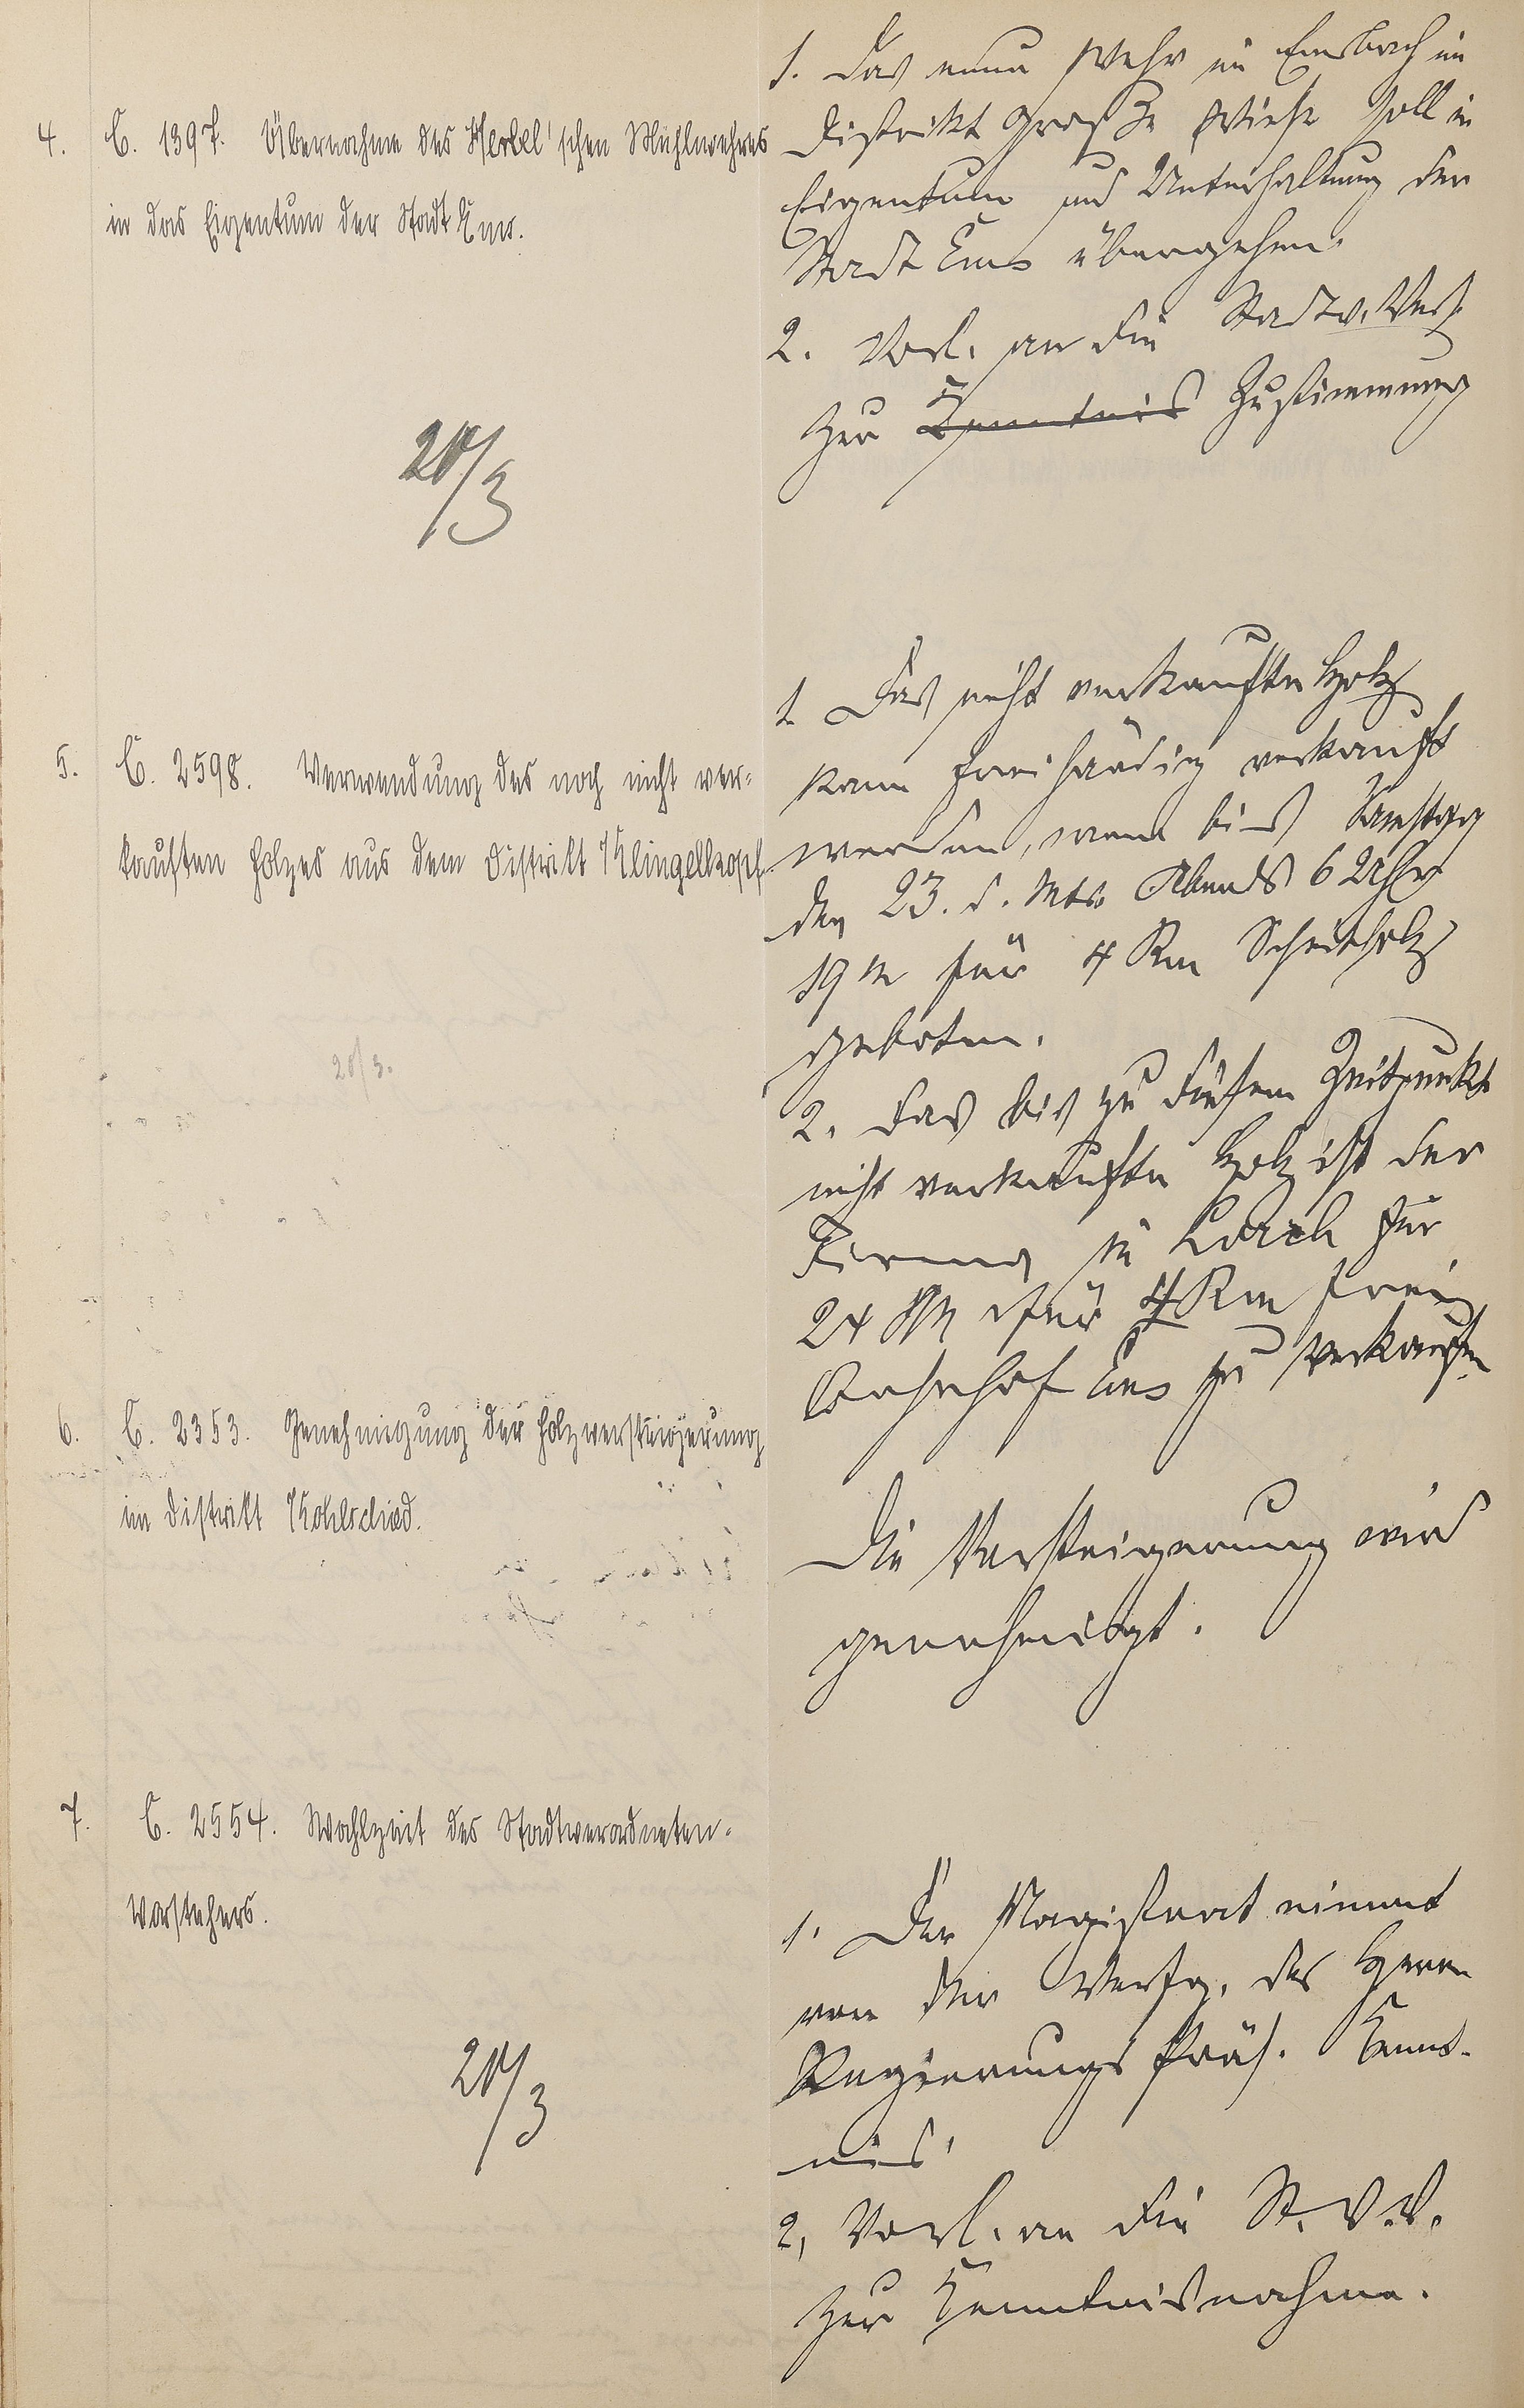 4. C. 1397. Übernahme des Herbel'schen Mühlwehres
in das Eigentum der Stadt Ems.
20/3
1. Das neue Wehr im Emsbach im
Distrikt Große Wiese soll in
Eigentum und Unterhaltung der
Stadt Ems übergehen.
2. Vorl. an die Stadtv. Vers.
zur Kenntnis Zustimmung
5. C. 2598. Verwendung des noch nicht ver-
kauften Holzes aus dem Distrikt Klingelkopf.
20/3.
1. Das nicht verkaufte Holz
kann freihändig verkauft
werden, wenn bis Samstag
den 23. d. Mts. Abends 6 Uhr
19 M für 4 Rm Scheitholz
geboten.
2. Das bis zu diesem Zeitpunkt
nicht verkaufte Holz ist der
Firma in Lorch für
24 M für 4 Rm frei
Bahnhof Ems zu verkaufen
6. C. 2353. Genehmigung der Holzversteigerung
im Distrikt Kohlschied.
Die Versteigerung wird
genehmigt.
7. C. 2554. Wahlzeit des Stadtverordneten-
Vorstehers.
20/3
1. Der Magistrat nimmt
von der Verfg. des Herrn
Regierungs Präs. Kennt-
nis.
2, Vorl. an die St. V. V.
zur Kenntnisnahme.